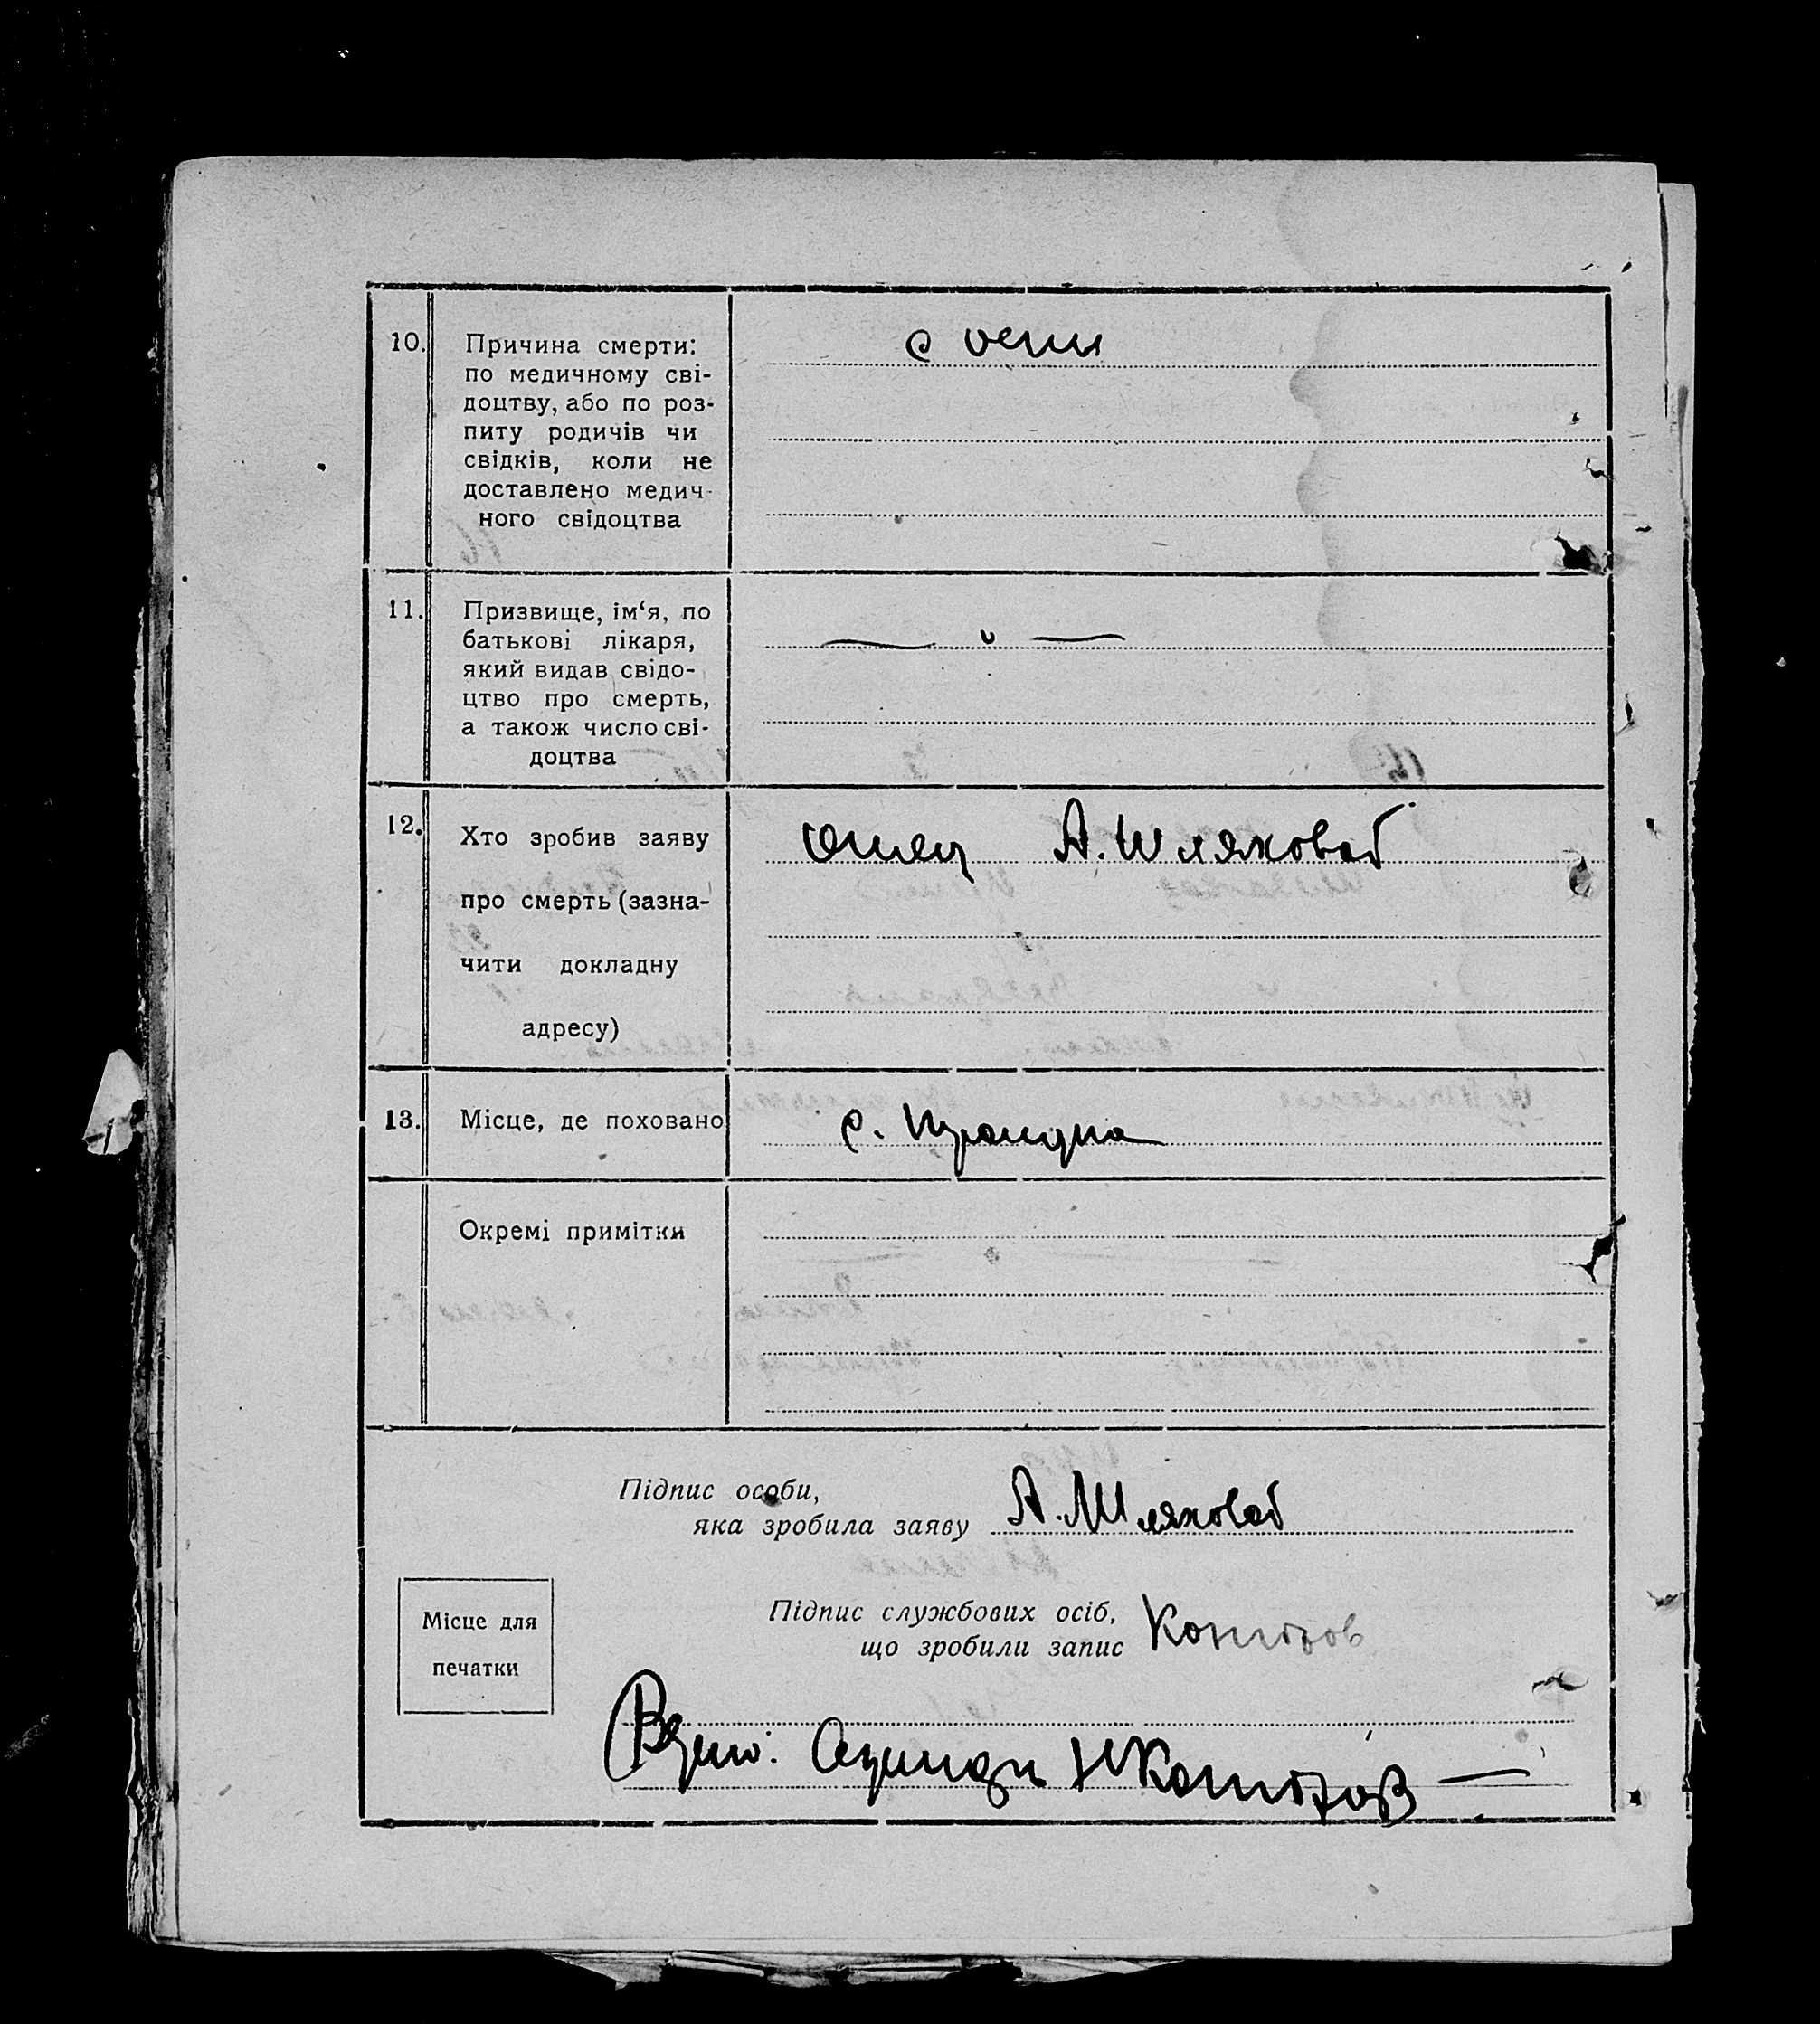 10. Причина смерти: с оспи
по медичному сві-
доцтву, або по роз-
питу родичів чи
свідків, коли не
доставлено медич-
ного свідоцтва
11. Призвище, ім‘я, по
батькові лікаря,
який видав свідо-
цтво про смерть,
а також число сві-
доцтва
12. Хто зробив заяву отец А. Шляховой
про смерть (зазна-
чити докладну
адресу)
13. Місце, де поховано с.
Окремі примітки
Підпис особи,
яка зробила заяву А. Шляховой
Підпис службових осіб,
що зробили запис
Місце для
печатки